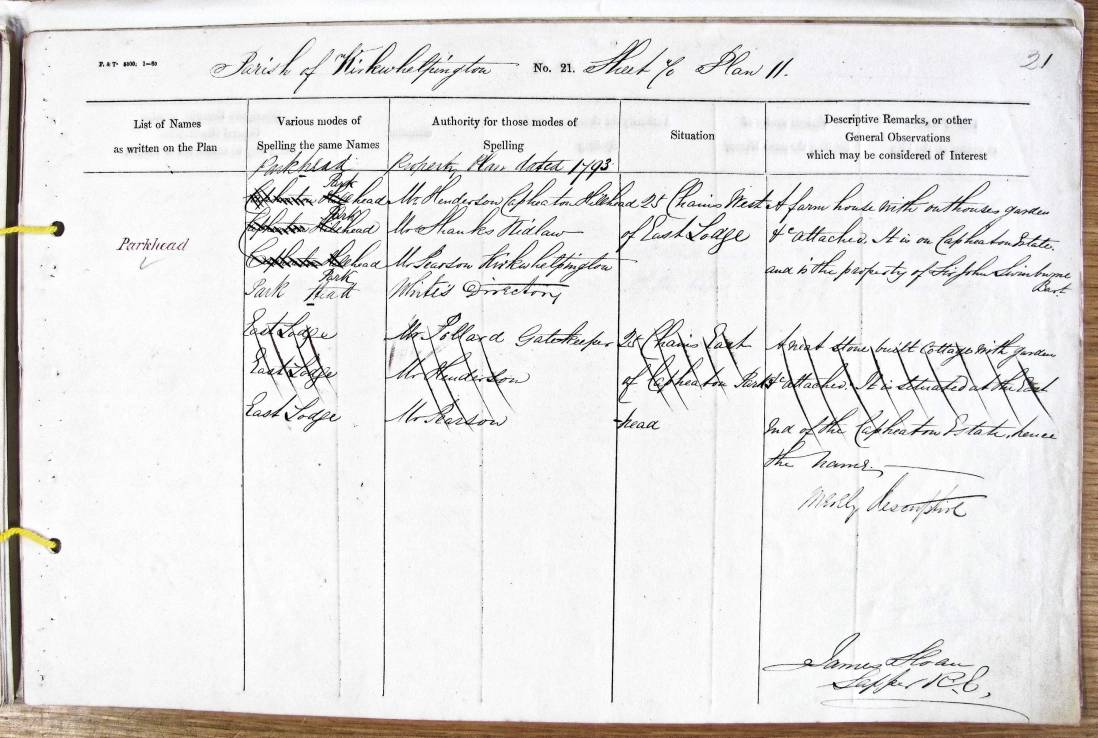 F. & T. 5500; 1—60
Parish of Kirkwhelpington No. 21. Sheet 70 Plan 11. 21
List of Names
as written on the Plan
Various modes of
Spelling the same Names
Authority for those modes of
Spelling
Situation
Descriptive Remarks, or other
General Observations
which may be considered of Interest
Parkhead
Parkhead
Park
head
Park
head
head
Park
Park Head
Property Plan dated 1793
Mr. Henderson Capheaton Hillhead
Mr Shanks Kidlaw
Mr Pearson Kirkwhelpington
White's Directory
25 Chains West
of East Lodge
A farm house with outhouses garden
&c attached. It is on Capheaton Estate.
and is the property of Sir John Swinburne
Bart.
East Lodge
East Lodge
East Lodge
Mr. Pollard Gatekeeper
Mr Henderson
Mr Pearson
25 Chains East
of Capheaton Park
head
A neat stone built Cottage with garden
&c attached. It is situated at the East
End of the Capheaton Estate, hence
the name.
Merely descriptive
James Sloan
Sapper R.E.